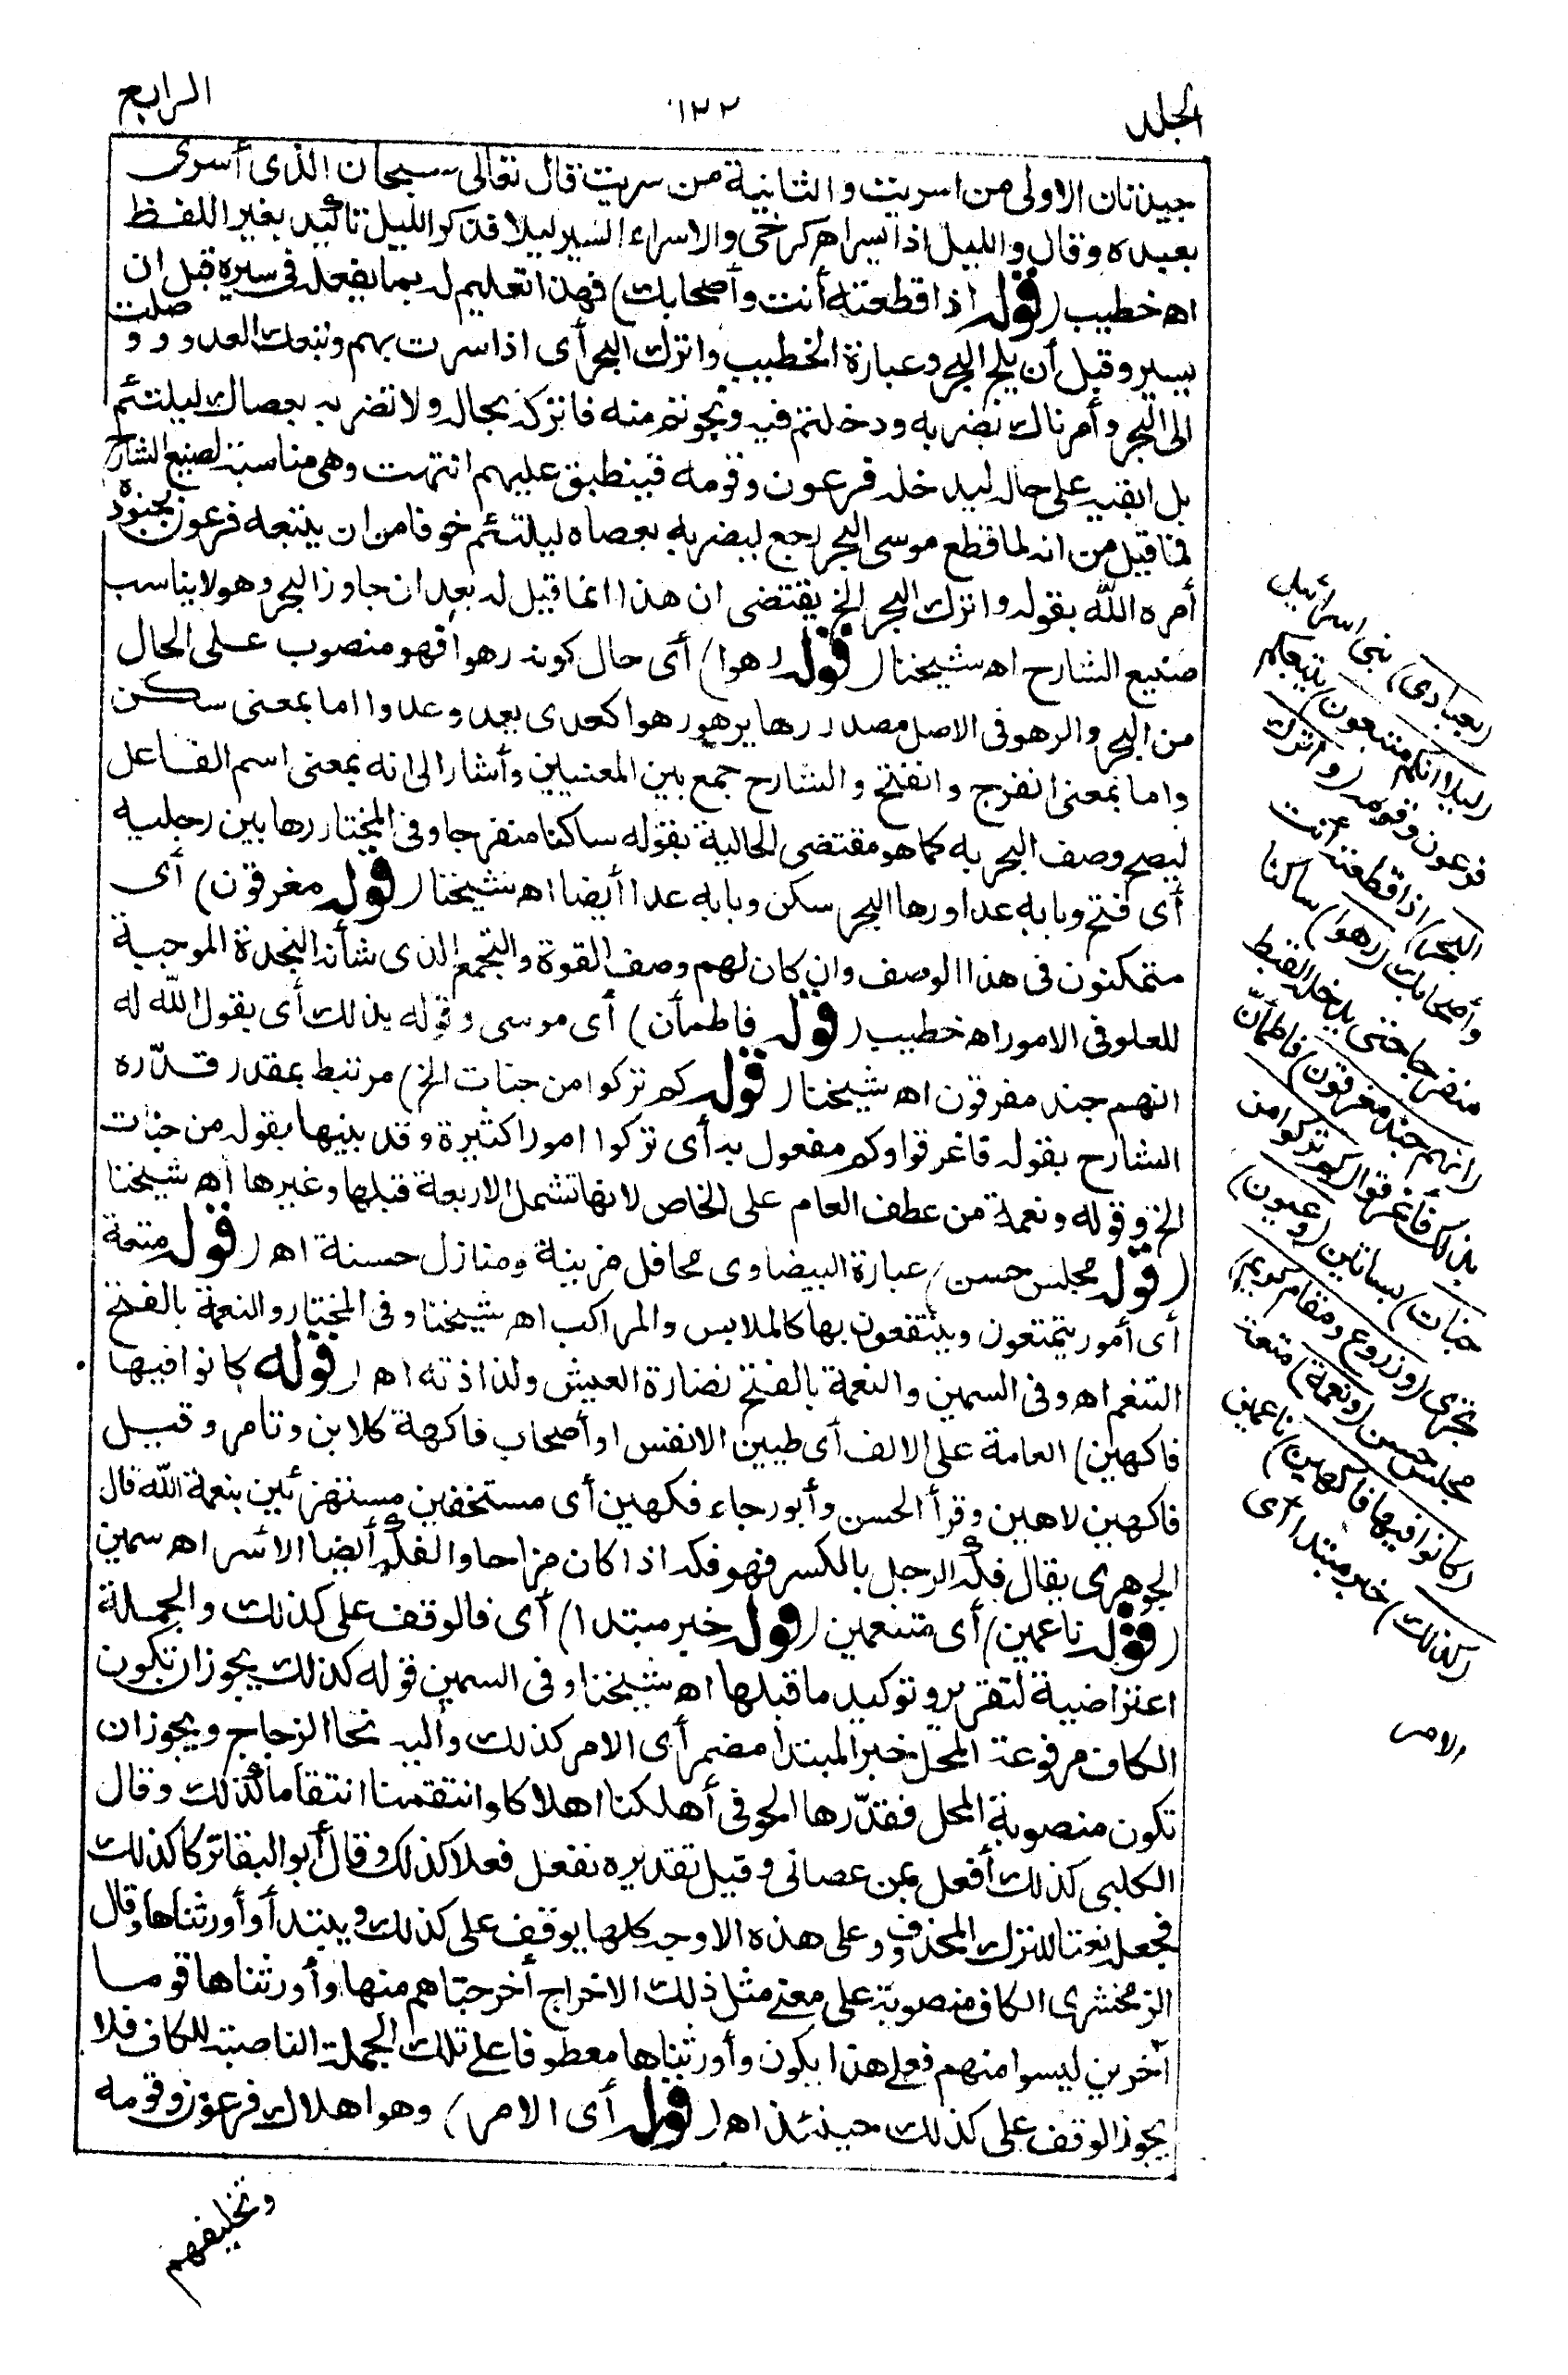 الجلد
١٣٢
الرابع
جيدتان الاولى من اسريت والثانية من سريت قال تعالى سبحان الذى أسرى
بعبده وقال والليل اذا يسر اهكرخى والاسراء السير ليلا فذكر الليل تاكيد بغير اللفظ
اه خطيب (قوله اذا قطعته أنت وأصحابك) فهذا تعليم له بما يفعله فى سيره قبل ان
يسير وقبل أن يلج البحر وعبارة الخطيب واترك البحر أى اذا سرت بهم وتبعك العدو ووصلت
الى البحر وأمرناك بضربه ودخلتم فيه ونجوتم منه فاتركه بحاله ولا تضربه بعصاك ليلتئم
بل ابقيه على حاله ليدخله فرعون وقومه فينطبق عليهم انتهت وهى مناسبة لصنيع الشارح
فما قيل من انه لما قطع موسى البحر رجع ليضربه بعصاه ليلتئم خوفا من ان يتبعه فرعون بجنوده
أمره الله بقوله واترك البحر الخ يقتضى ان هذا انما قيل له بعد ان جاوز البحر وهو لا يناسب
صنيع الشارح اه شيخنا (قوله رهوا) أى حال كونه رهوا فهو منصوب على الحال
من البحر والرهو فى الاصل مصدر رها يرهو رهوا كعدى يعدو عدوا اما بمعنى سكن
واما بمعنى انفرج وانفتح والشارح جمع بين المعنيين وأشار الى انه بمعنى اسم الفاعل
ليصح وصف البحر به كما هو مقتضى الحالية بقوله ساكنا منفرجا وفى المختار رها بين رجليه
أى فتح وبابه عدا ورها البحر سكن وبابه عدا أيضا اه شيخنا (قوله مغرقون) أى
متمكنون فى هذا الوصف وان كان لهم وصف القوة والتجمع الذى شأنه النجدة الموجبة
للعلو فى الامور اه خطيب (قوله فاطمأن) أى موسى وقوله بذلك أى بقول الله له
انهم جند مغرقون اه شيخنا (قوله كم تركوا من جنات الخ) مرتبط بمقدر قدّره
الشارح بقوله فاغرقوا وكم مفعول به أى تركوا امورا كثيرة وقد بينها بقوله من جنات
الخ وقوله ونعمة من عطف العام على الخاص لانها تشمل الاربعة قبلها وغيرها اه شيخنا
(قوله مجلس حسن) عبارة البيضاوى محافل مزينة ومنازل حسنة اه (قوله متعة
أى أمور يتمتعون وينتفعون بها كالملابس والمراكب اه شيخنا وفى المختار والنعمة بالفتح
التنعم اه وفى السمين والنعمة بالفتح نضارة العيش ولذاذته اه (قوله كانوا فيها
فاكهين) العامة على الالف أى طيبين الانفس او أصحاب فاكهة كلابن وتامر وقيل
فاكهين لاهين وقرأ الحسن وأبو رجاء فكهين أى مستخفين مستهزئين بنعمة الله قال
الجوهرى يقال فكه الرجل بالكسر فهو فكه اذا كان مزاحا والفكه أيضا الاشر اه سمين
(قوله ناعمين) أى متنعمين (قوله خبر مبتدا) أى فالوقف على كذلك والجملة
اعتراضية لتقرير وتوكيد ما قبلها اه شيخنا وفى السمين قوله كذلك يجوز ان تكون
الكاف مرفوعة المحل خبر المبتدا مضمر أى الامر كذلك واليه نحا الزجاج ويجوز ان
تكون منصوبة المحل فقدّرها الحوفى أهلكنا اهلاكا وانتقمنا انتقاما كذلك وقال
الكلبى كذلك أفعل بمن عصانى وقيل تقديره نفعل فعلا كذلك وقال أبو البقا تركا كذلك
فجعله نعتا للترك المحذوف وعلى هذه الاوجه كلها يوقف على كذلك ويبتدأ وأورثناها وقال
الزمخشرى الكاف منصوبة على معنى مثل ذلك الاخراج أخرجناهم منها وأورثناها قوما
آخرين ليسوا منهم فعلى هذا يكون وأورثناها معطوفا على تلك الجملة الناصبة للكاف فلا
يجوز الوقف على كذلك حينئذ اه (قوله أى الامر) وهو اهلاك فرعون وقومه
وتخليفهم
(بعبادى) بنى اسرائيل
(ليلا انكم متبعون) يتبعكم
فرعون وقومه (واترك
البحر) اذا قطعته أنت
وأصحابك (رهوا) ساكنا
منفرجا حتى يدخله القبط
(انهم جند مغرقون) فاطمأنّ
بذلك فأغرقوا (كم تركوا من
جنات) بساتين (وعيون)
تجرى (وزروع ومقام كريم)
مجلس حسن (ونعمة) متعة
(كانوا فيها فاكهين) ناعمين
(كذلك) خبر مبتدا أى
الامر